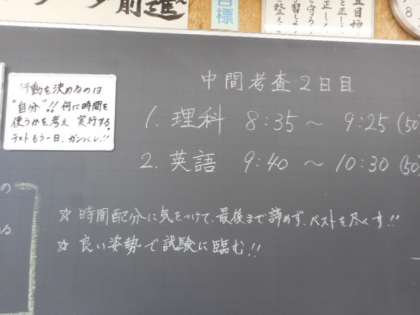 前進
目標
行動を決めるのは
"自分"!! 何に時間を
使うかを考え 実行する。
テストもう一日、ガンバレ!!
中間考査2日目
1. 理科 8:35 ～ 9:25 (50
2. 英語 9:40 ～ 10:30 (50
☆ 時間配分に気をつけて、最後まで諦めず、ベストを尽くす!!
☆ 良い姿勢で試験に臨む!!